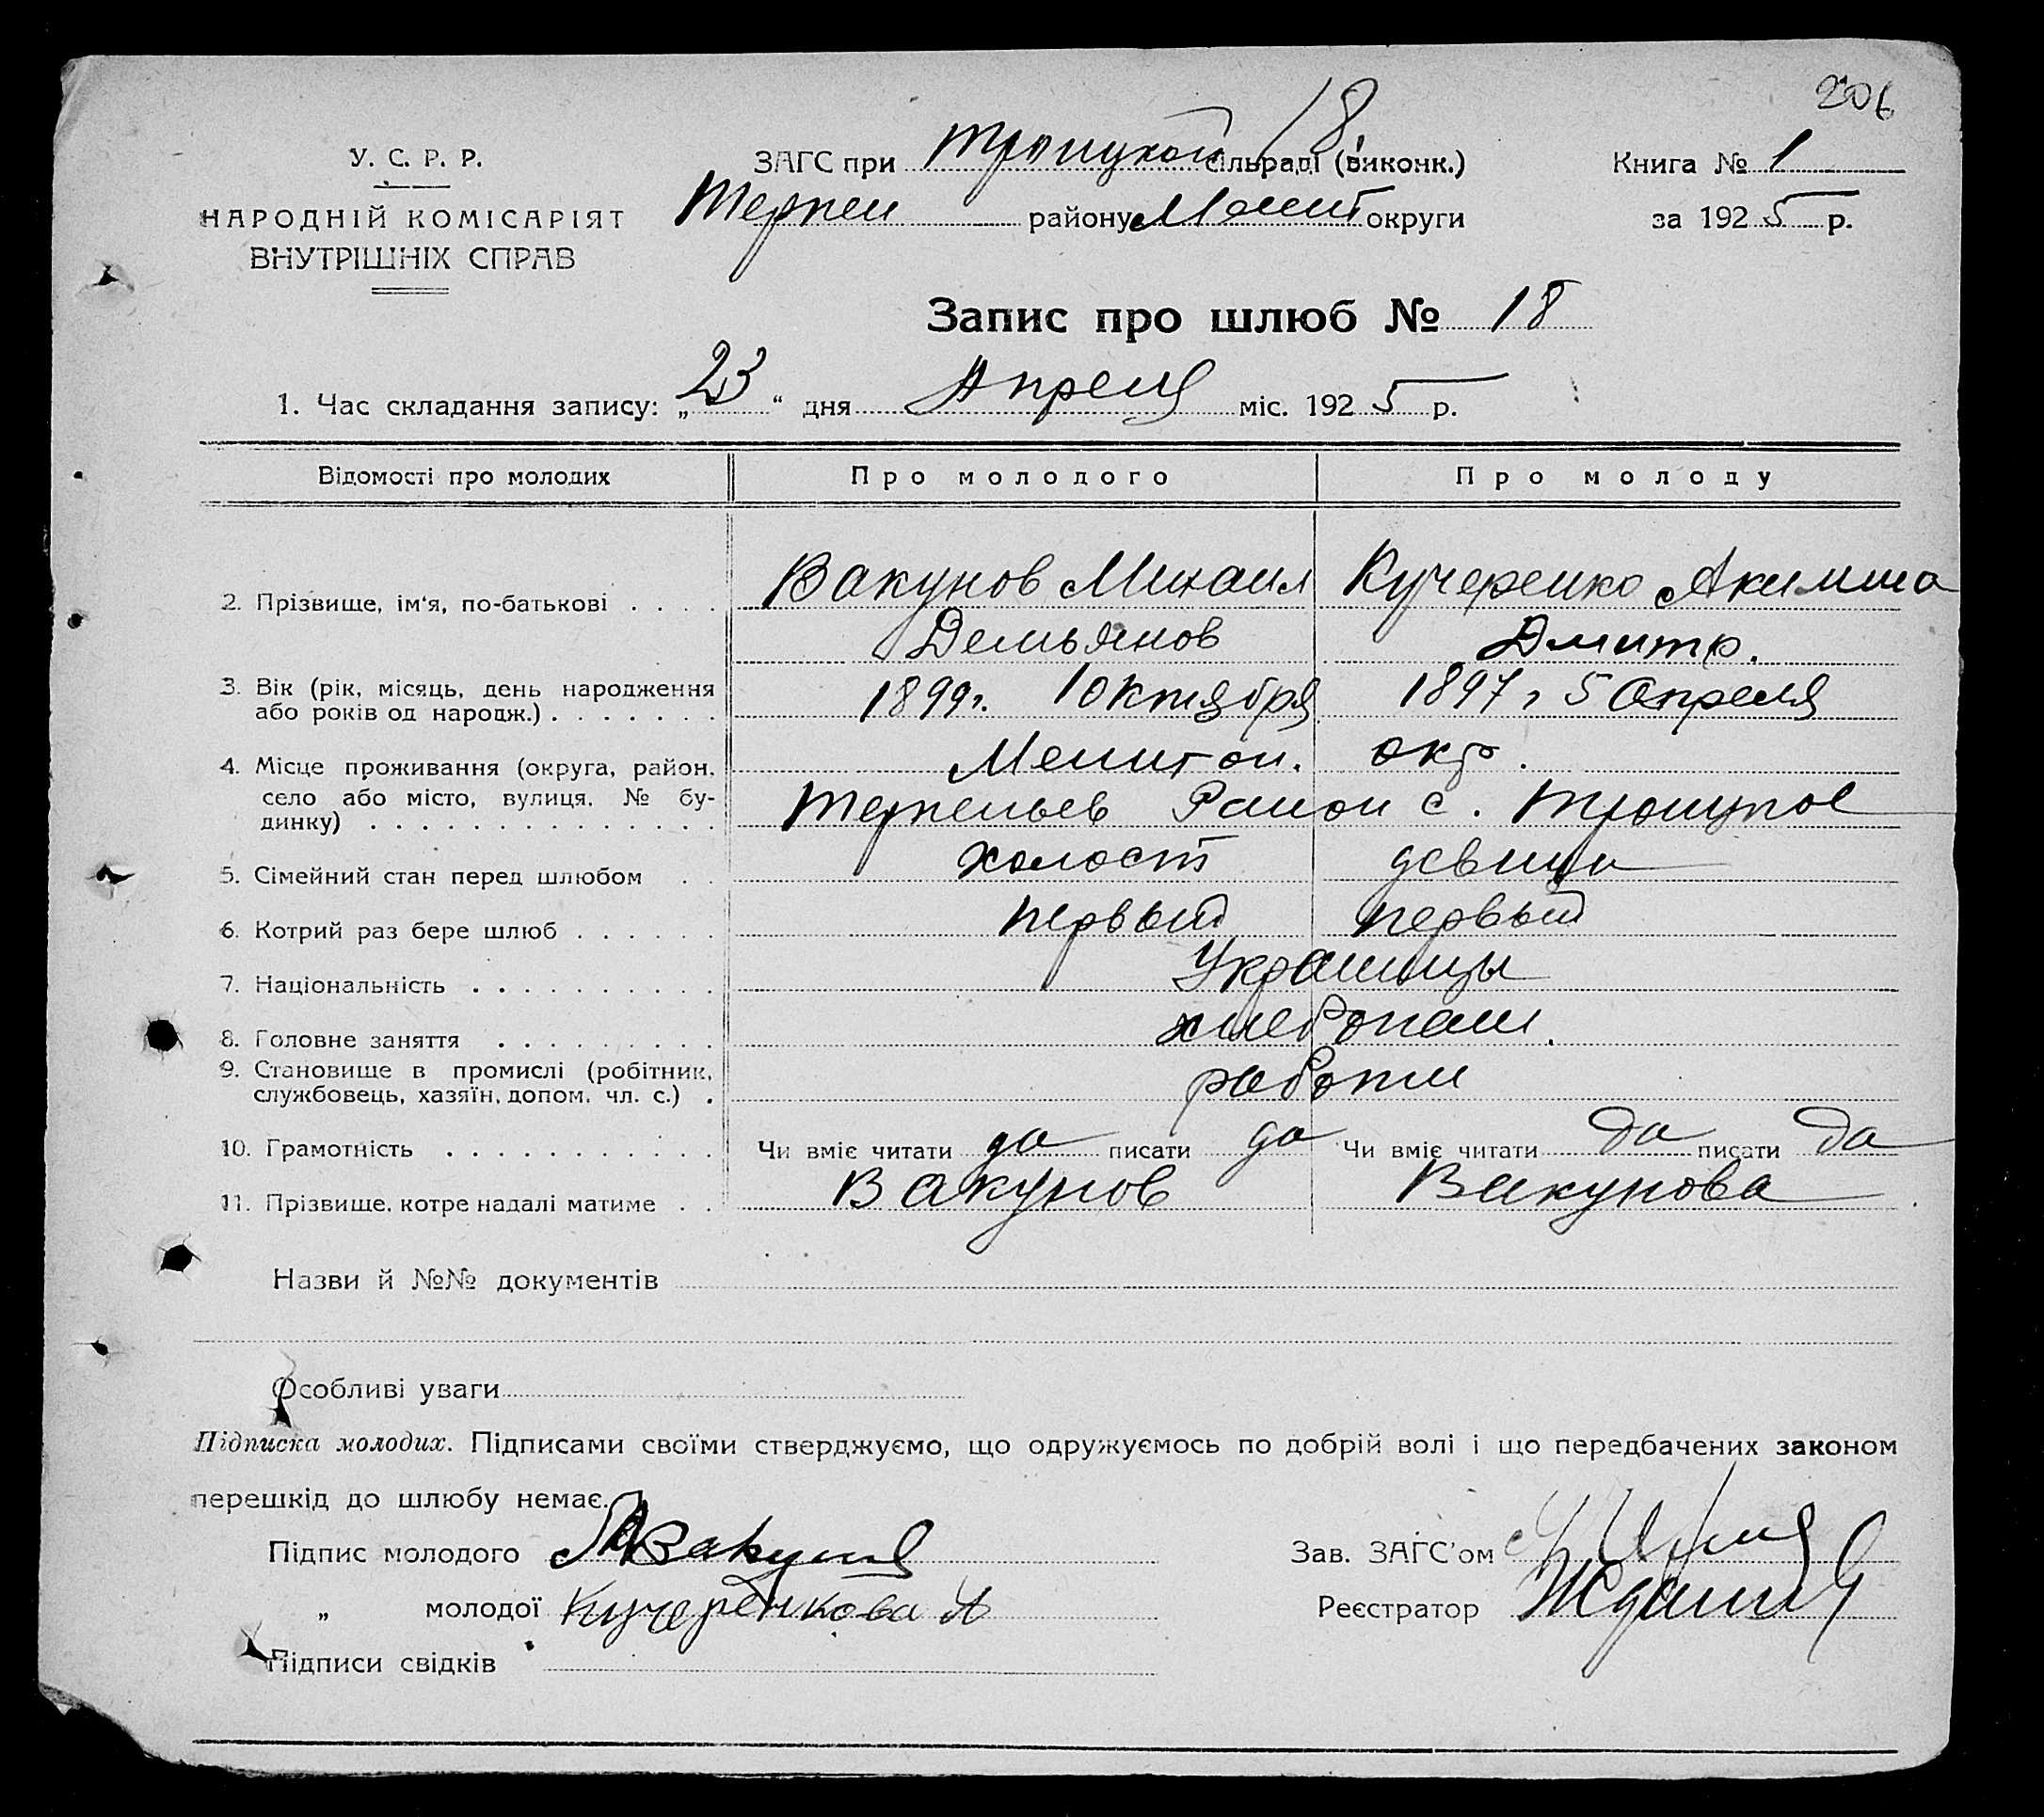 206
У. С. Р. Р.
НАРОДНІЙ КОМІСАРІЯТ
ВНУТРІШНІХ СПРАВ
ЗАГС при Троицкой сільраді (виконк.)
18
Терпен району Мелит округи
Книга № 1
за 1925 р.
Запис про шлюб № 18
1. Час складання запису: „23“ дня Апреля міс. 1925 р.
Відомості про молодих Про молодого Про молоду
2. Прізвище, ім‘я, по-батькові . . . . Вакунов Михаил Кучеренко Акилина
Демьянов Дмитр.
3. Вік (рік, місяць, день народження або років од народж.) . . . . . . . 1899г. 1 Октября 1897 г 5 Апреля
4. Місце проживання (округа, район, село або місто, вулиця, № будинку) . . . . . . . . . . . . . . Мелитоп. окр.
Терпеньев Район с. Троицкое
5. Сімейний стан перед шлюбом . . холост девица
6. Котрий раз бере шлюб . . . . . . первый первый
7. Національність . . . . . . . . . . Украинцы
8. Головне заняття . . . . . . . . . хлебопаш.
9. Становище в промислі (робітник, службовець, хазяїн, допом. чл. с.) .
10. Грамотність . . . . . . . . . . . Чи вміє читати да писати да Чи вміє читати да писати да
11. Прізвище, котре надалі матиме . . Вакунов Вакунова
Назви й №№ документів
Особливі уваги
Підписка молодих. Підписами своїми стверджуємо, що одружуємось по добрій волі і що передбачених законом
перешкід до шлюбу немає.
Підпис молодого МВакунов
Зав. ЗАГС’ом
„ молодої Кучеренкова А
Реєстратор
Підписи свідків